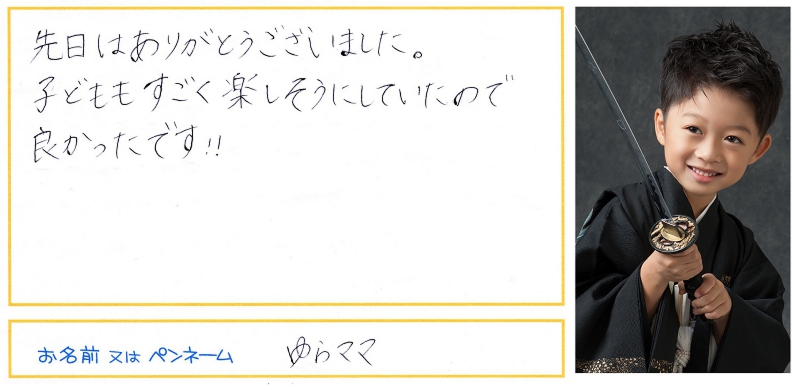 先日はありがとうございました。
子どももすごく楽しそうにしていたので
良かったです!!
お名前 又は ペンネーム ゆらママ